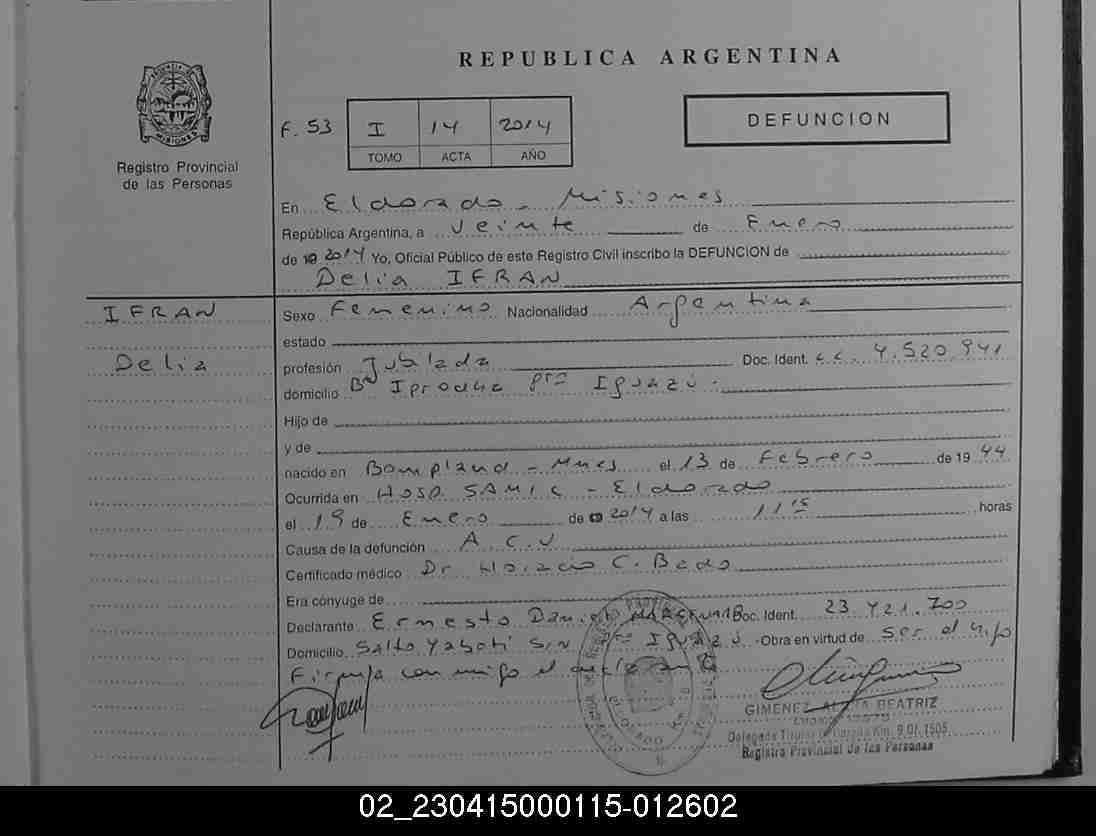 REPUBLICA ARGENTINA
Registro Provincial
de las Personas
F. 53 I 14 2014
TOMO ACTA AÑO
DEFUNCION
En Eldorado - Misiones
República Argentina, a Veinte de Enero
de 19 2014 Yo, Oficial Público de este Registro Civil inscribo la DEFUNCION de
Delia IFRAN
IFRAN
Delia
Sexo Femenino Nacionalidad Argentina
estado
profesión Jubilada Doc. Ident. L.C. 4.520.941
domicilio Bº Iprodha Pto Iguazú.
Hijo de
y de
nacido en Bompland - Mnes el 13 de Febrero de 19 44
Ocurrida en Hosp. SAMIC - Eldorado
el 19 de Enero de 2014 a las 11 15 horas
Causa de la defunción A.C.V
Certificado médico Dr. Horacio C. Bado
Era cónyuge de
Declarante Ernesto Daniel Doc. Ident. 23.421.700
Domicilio Salto Yaboti S/N Pto Iguazú - Obra en virtud de ser el hijo
Firma conmigo el declarante
GIMENEZ BEATRIZ
Delegada Titular
Registro Provincial de las Personas
02_230415000115-012602